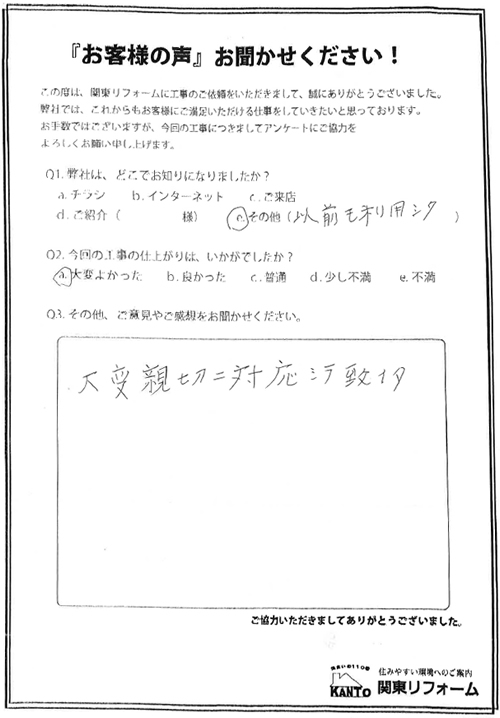 『お客様の声』お聞かせください！
この度は、関東リフォームに工事のご依頼をいただきまして、誠にありがとうございました。
弊社では、これからもお客様にご満足いただける仕事をしていきたいと思っております。
お手数ではございますが、今回の工事につきましてアンケートにご協力を
よろしくお願い申し上げます。
Q1. 弊社は、どこでお知りになりましたか？
a. チラシ　b. インターネット　c. ご来店
d. ご紹介（　　　様）　e. その他（以前も利用シタ　）
Q2. 今回の工事の仕上がりは、いかがでしたか？
a. 大変よかった　b. 良かった　c. 普通　d. 少し不満　e. 不満
Q3. その他、ご意見やご感想をお聞かせください。
大変親切ニ対応シテ致イタ
ご協力いただきましてありがとうございました。
住まいの110番
KANTO
住みやすい環境へのご案内
関東リフォーム